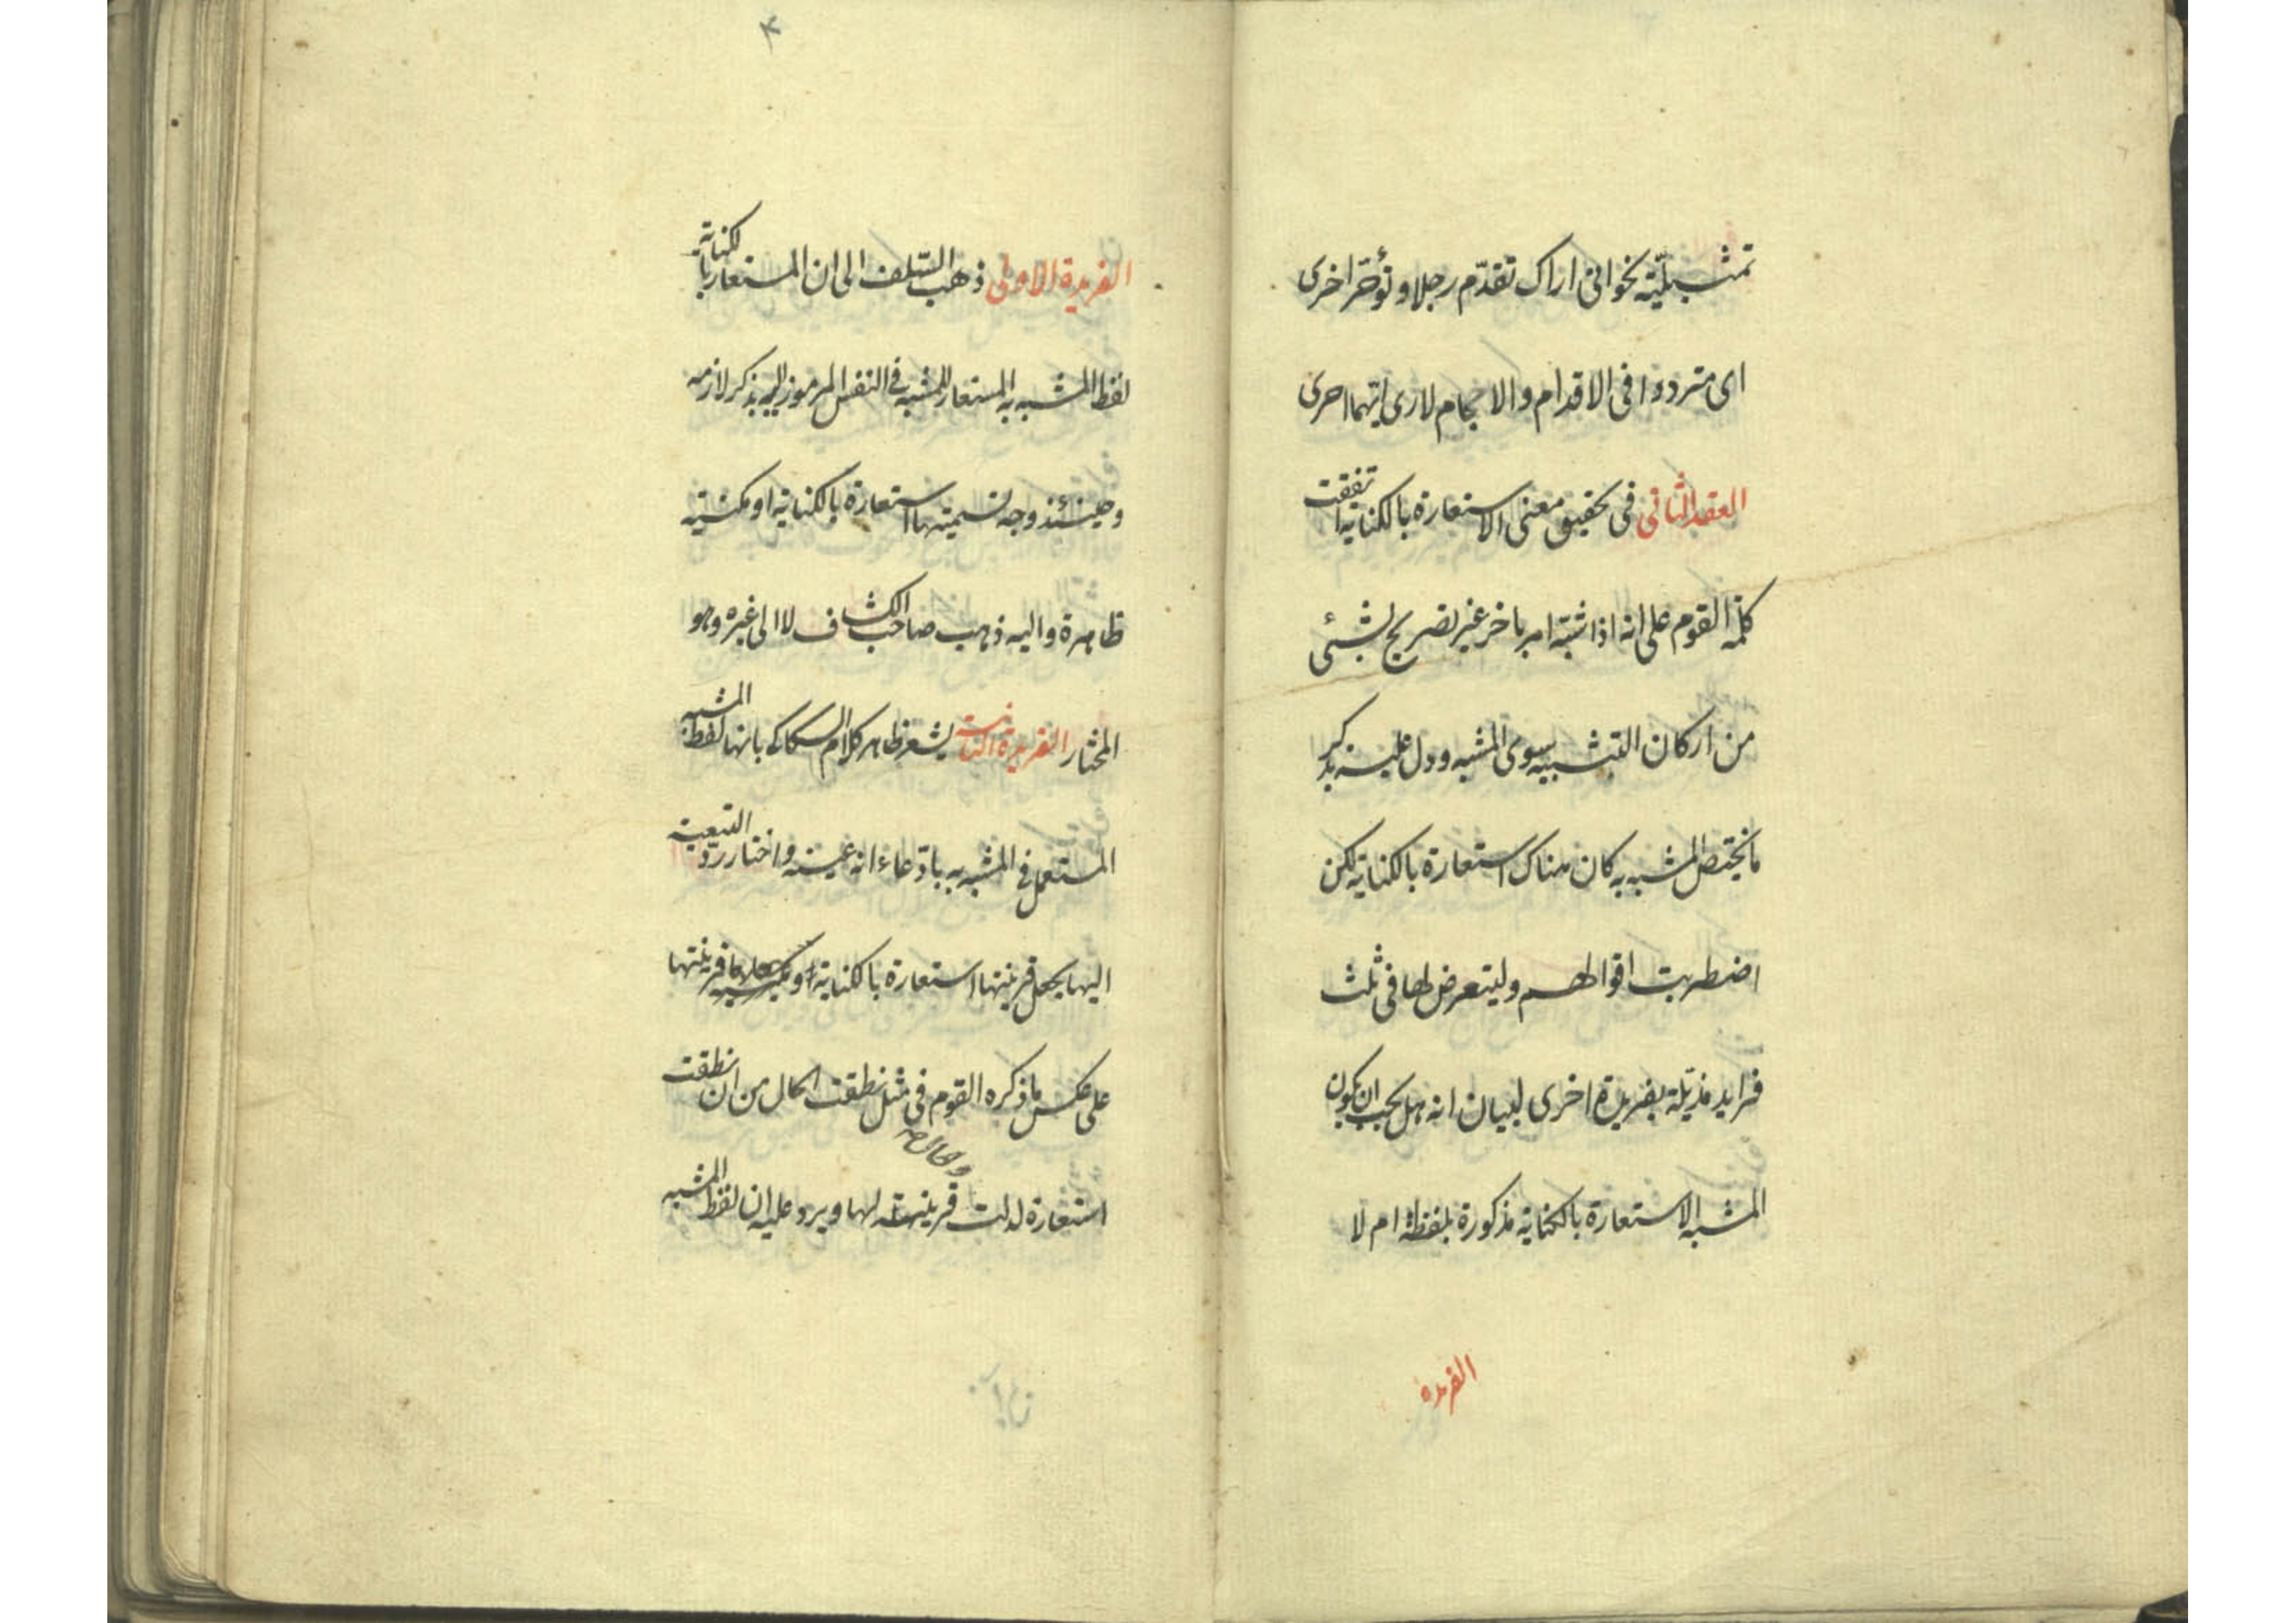 تمثيليّة نحو انى اراك تقدّم رجلا و تؤخّر اخرى
اى مترددا فى الاقدام والاحجام لا ادرى ايتهما احرى
العقد الثانى فى تحقيق معنى الاستعارة بالكناية اتفقت
كلمة القوم على انه اذا شبّه امر باخر غير تصريح بشئى
من اركان التشبيه سوى المشبه و دل عليه بذكر
ما يختص المشبه به كان هناك استعارة بالكناية لكن
اضطربت اقوالهم وليتعرض لها فى ثلث
فرايد مذيّلة بفريدة اخرى لبيان انه هل يجب ان يكون
المشبه الاستعارة بالكناية مذكورة بلفظه ام لا
الفريده
۴
الفريدة الاولى ذهب السّلف الى ان المستعار بالكناية
لفظ المشبه به المستعار للمشبه فى النفس المرموز اليه بذكر لازمه
وحينئذ وجه تسميتها استعارة بالكناية او مكنية
ظاهرة واليه ذهب صاحب الكشاف لا الى غيره وهو
المختار الفريدة الثانية يشعر ظاهر كلام السكاكى بانها لفظ المشبه
المستعمل فى المشبه به بادّعاء انه عينه واختار ردّ التبعية
اليها بجعل قرينتها استعارة بالكناية و قرينتها
على عكس ما ذكره القوم فى مثل نطقت الحال من ان نطقت
استعارة لدلت والحال قرينة لها ويرد عليه ان لفظ المشبه